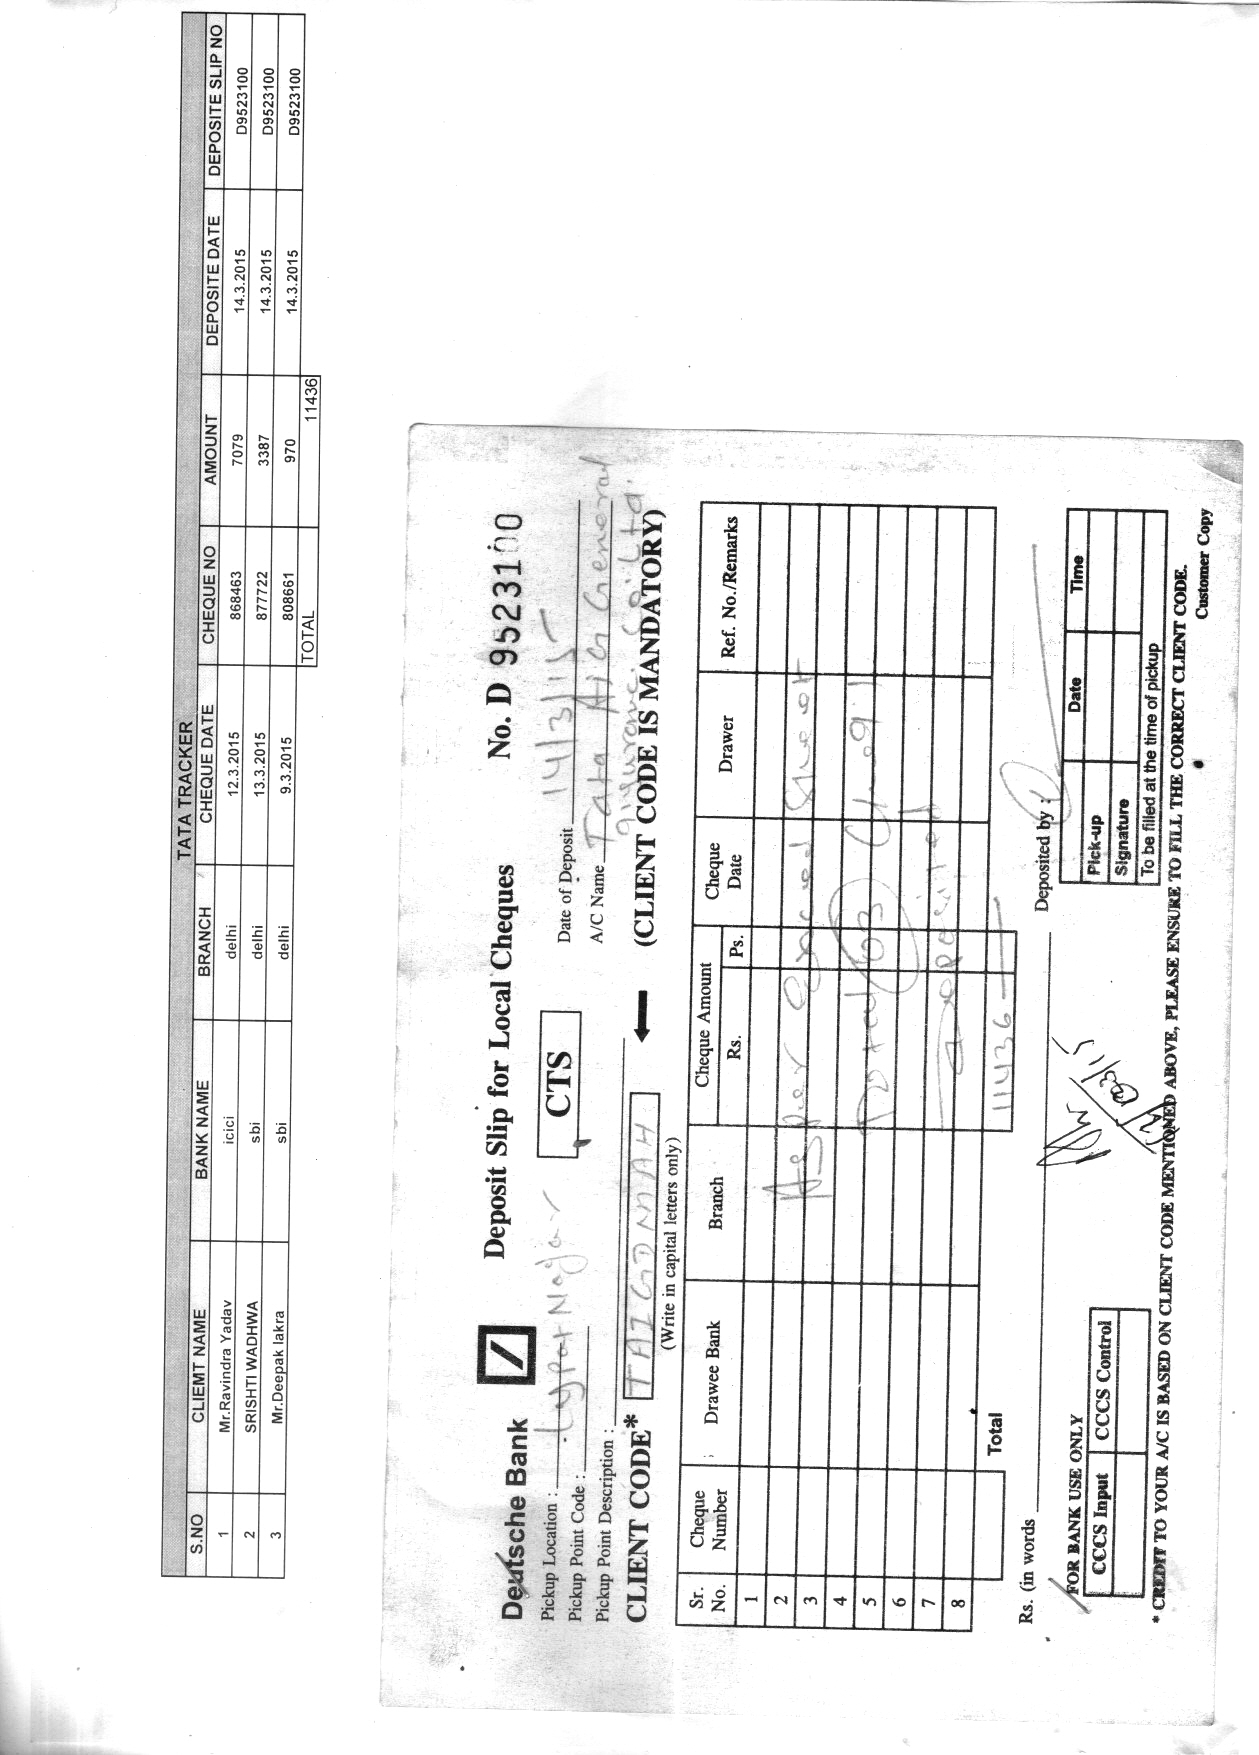 TATA TRACKER
S.NO CLIEMT NAME BANK NAME BRANCH CHEQUE DATE CHEQUE NO AMOUNT DEPOSITE DATE DEPOSITE SLIP NO
1 Mr.Ravindra Yadav icici delhi 12.3.2015 868463 7079 14.3.2015 D9523100
2 SRISHTI WADHWA sbi delhi 13.3.2015 877722 3387 14.3.2015 D9523100
3 Mr.Deepak lakra sbi delhi 9.3.2015 808661 970 14.3.2015 D9523100
TOTAL 11436
Deutsche Bank Deposit Slip for Local Cheques No. D 9523100
Pickup Location : Lajpat Nagar CTS Date of Deposit 14/3/15
Pickup Point Code : A/C Name Tata AIG General
Pickup Point Description : Insurance Co. Ltd.
CLIENT CODE* TAIGDMAH (CLIENT CODE IS MANDATORY)
(Write in capital letters only)
Sr. No. Cheque Number Drawee Bank Branch Cheque Amount Rs. Ps. Cheque Date Drawer Ref. No./Remarks
1
2
3 As per Sheet
4
5 Total 03 Chq.
6
7 deposited
8
Total 11436
Rs. (in words Deposited by :
FOR BANK USE ONLY
CCCS Input CCCS Control
Date Time
Pick-up
Signature
To be filled at the time of pickup
* CREDIT TO YOUR A/C IS BASED ON CLIENT CODE MENTIONED ABOVE, PLEASE ENSURE TO FILL THE CORRECT CLIENT CODE.
Customer Copy